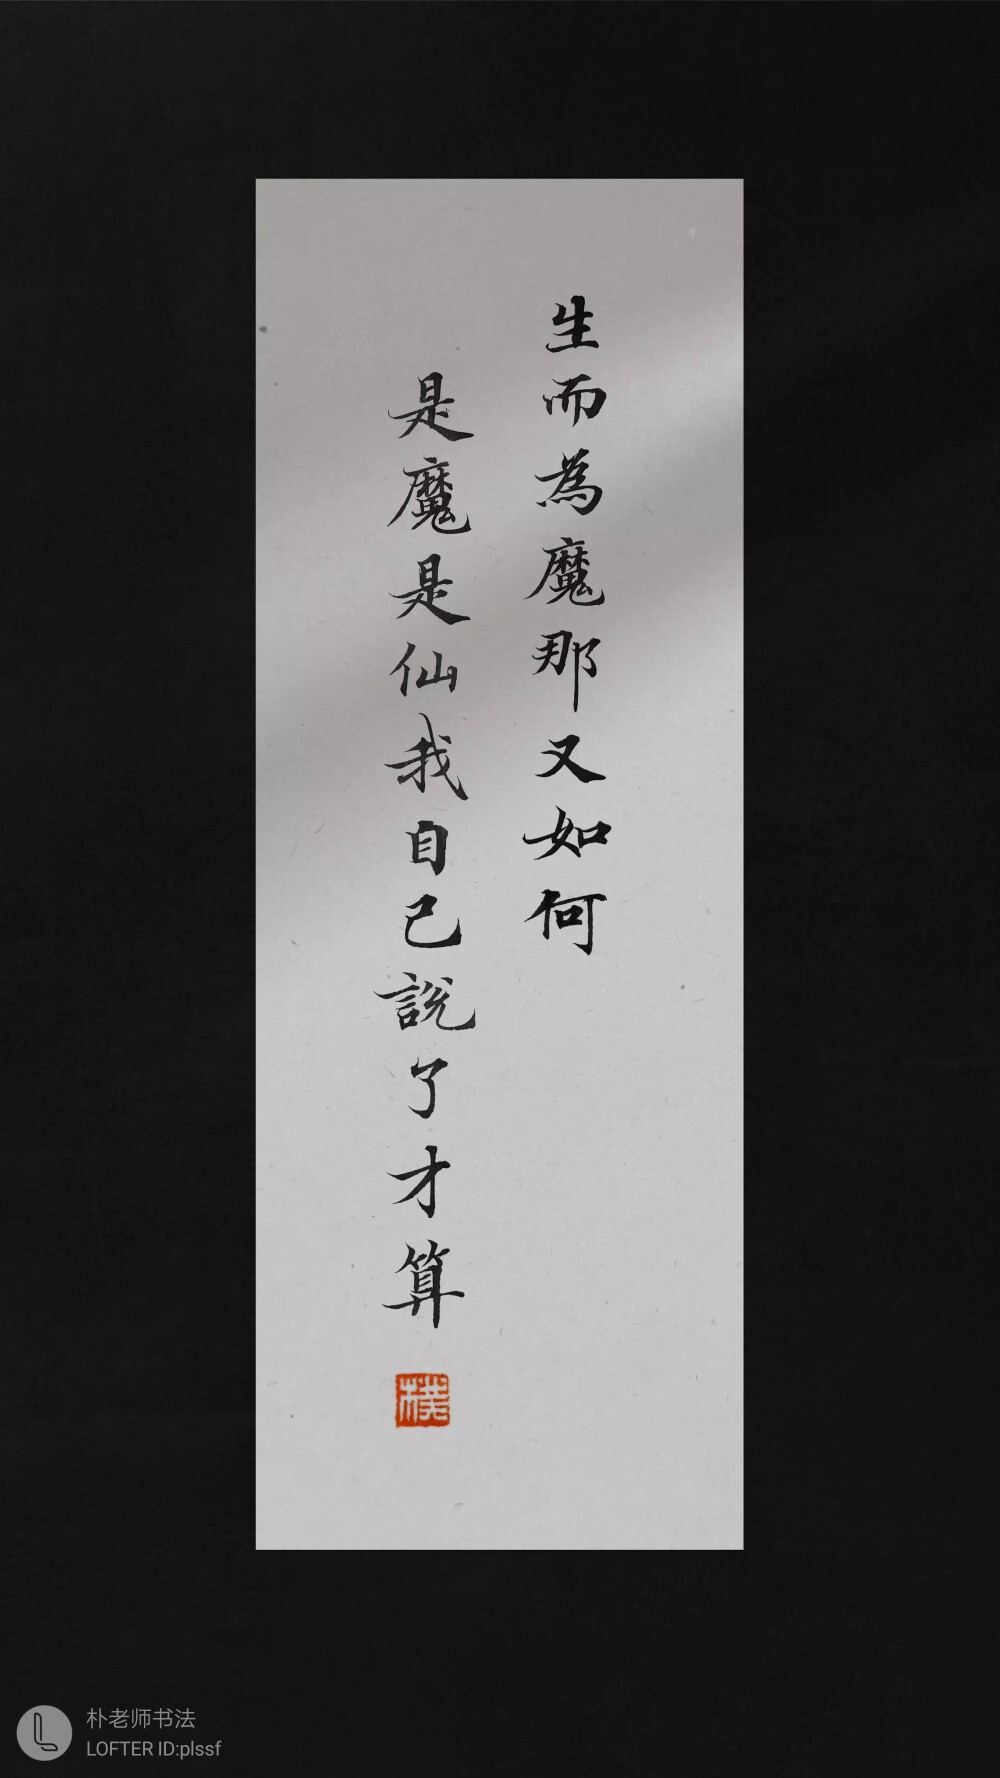 生而為魔那又如何
是魔是仙我自己說了才算
樸
朴老师书法
LOFTER ID:plssf